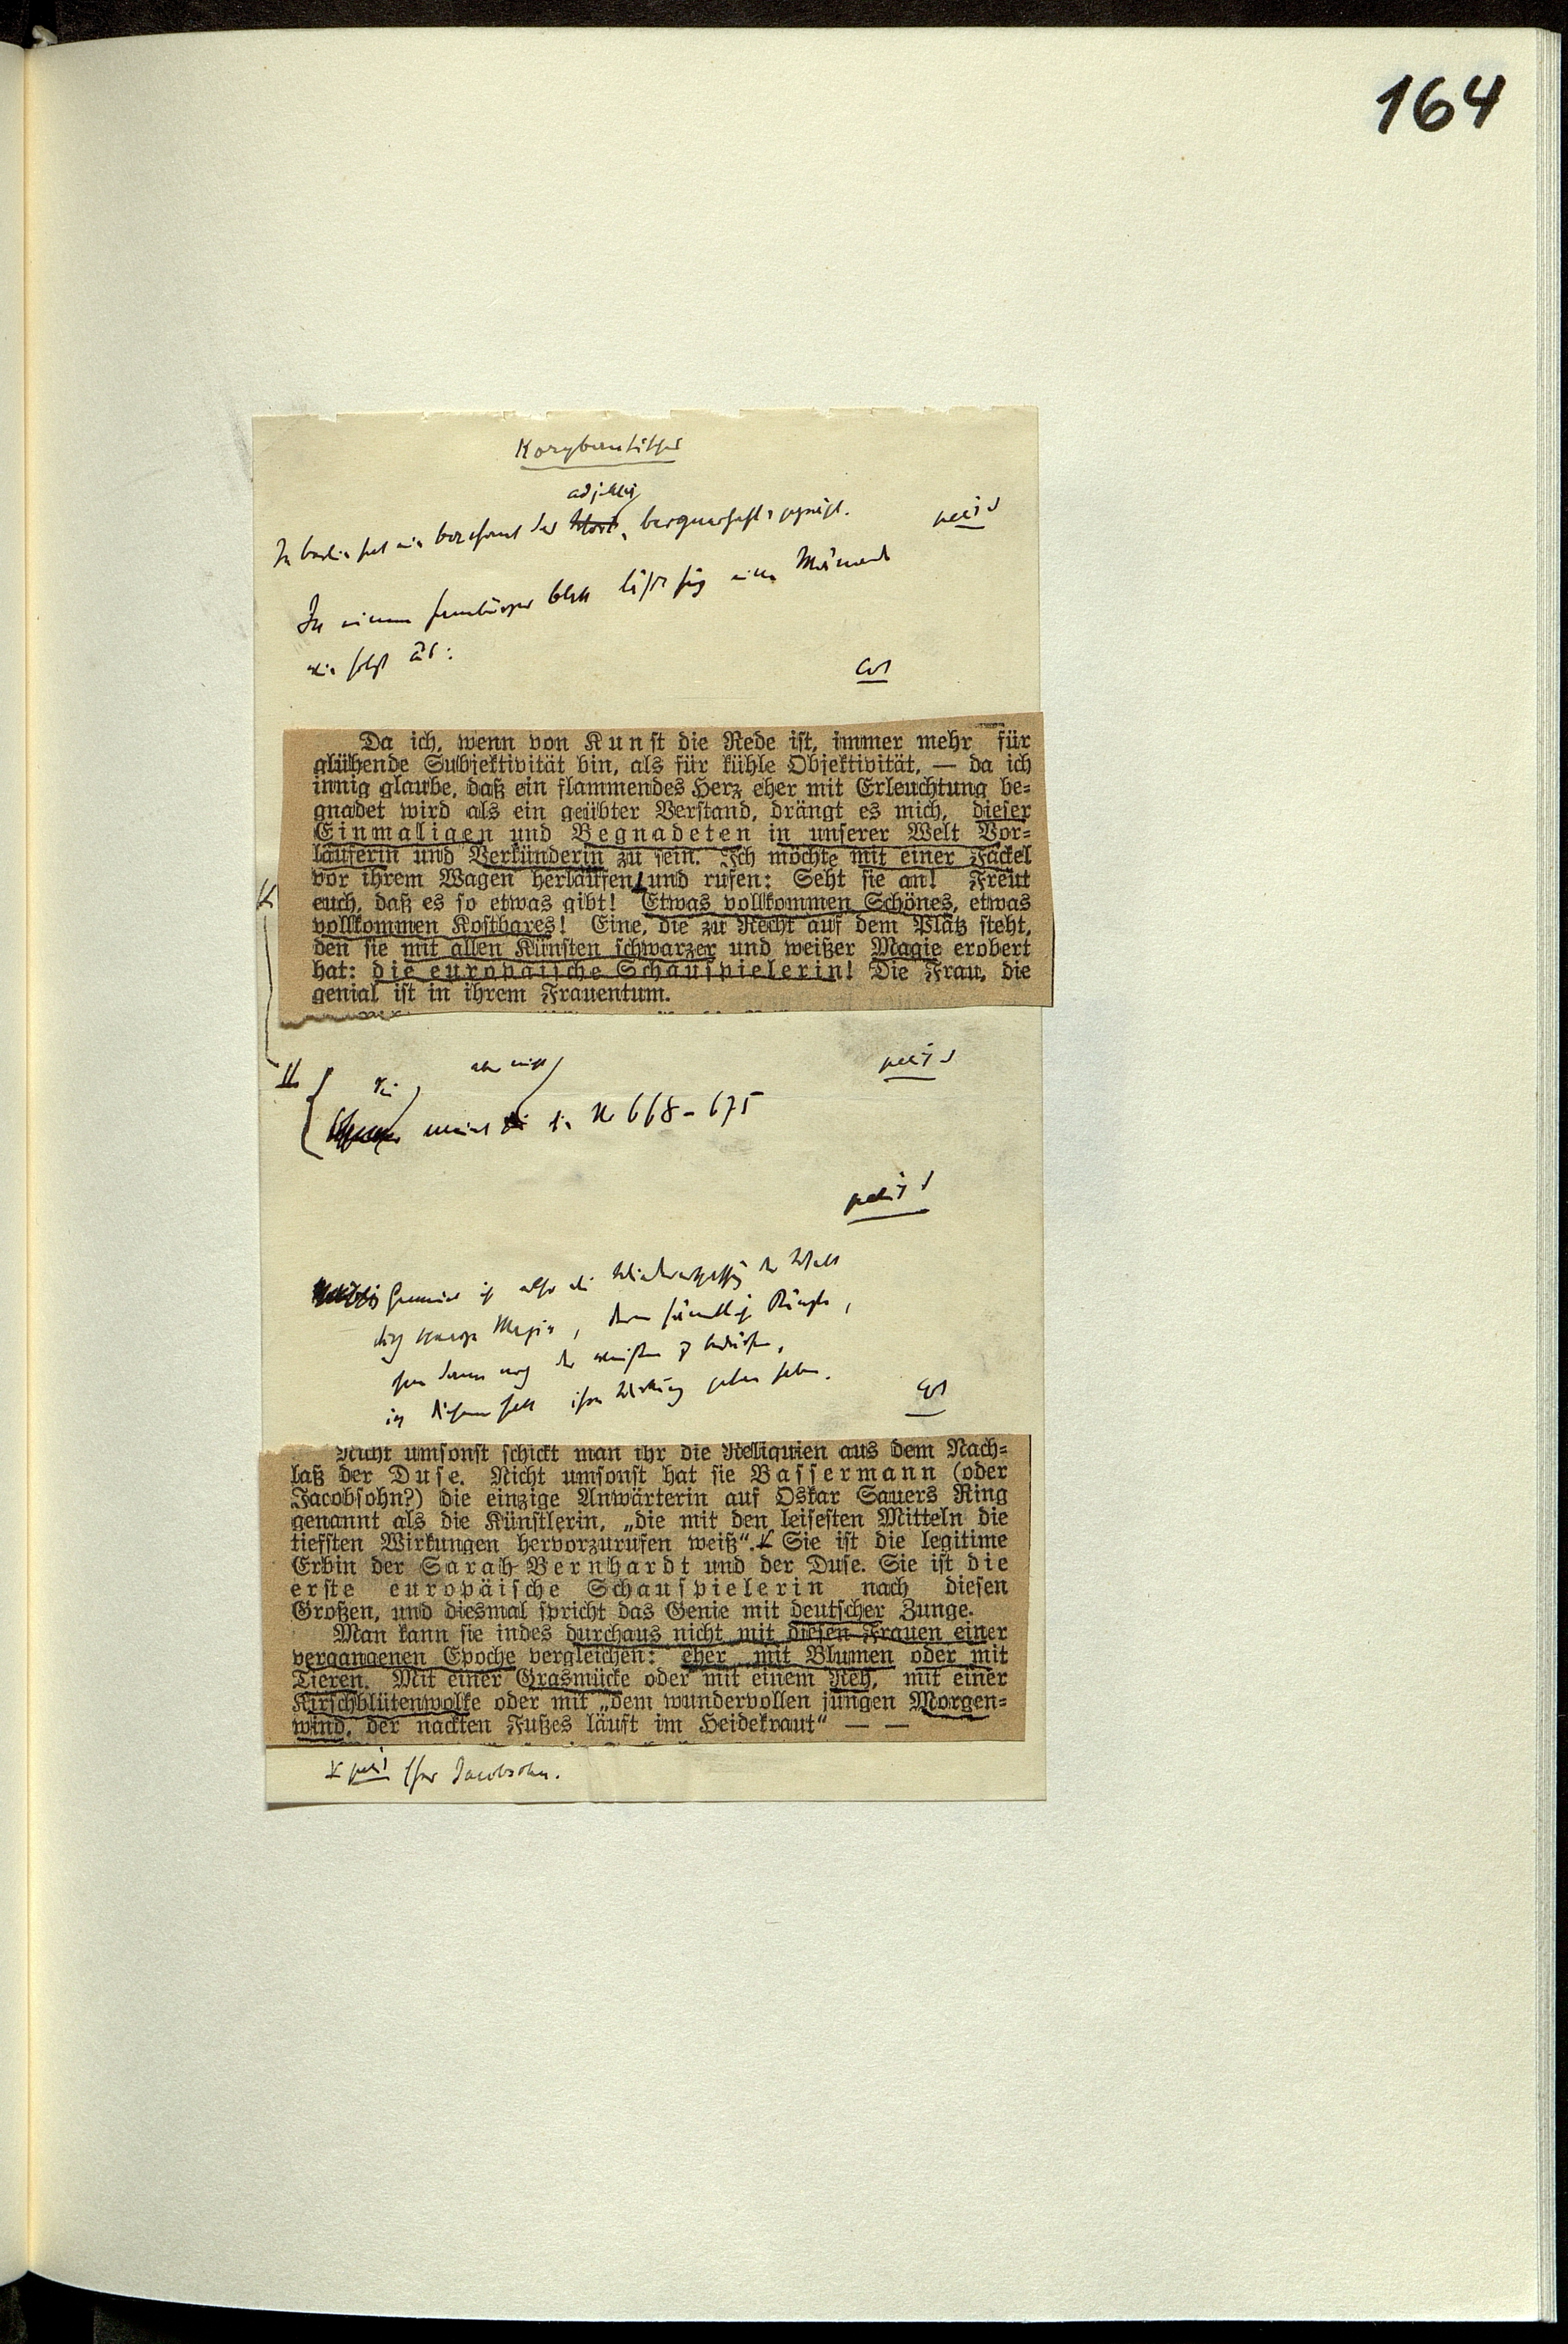 164
Korybantisches
In Berlin hat ein
petit
In einem Hamburger Blatt läßt sich eine Mänade
wie folgt aus:
Cor
Da ich, wenn von Kunst die Rede ist, immer mehr für
glühende Subjektivität bin, als für kühle Objektivität, — da ich
innig glaube, daß ein flammendes Herz eher mit Erleuchtung be-
gnadet wird als ein geübter Verstand, drängt es mich, dieser
Einmaligen und Begnadeten in unserer Welt Vor-
läuferin und Verkünderin zu sein. Ich möchte mit einer Fackel
vor ihrem Wagen herlaufen und rufen: Seht sie an! Freut
euch, daß es so etwas gibt! Etwas vollkommen Schönes, etwas
vollkommen Kostbares! Eine, die zu Recht auf dem Platz steht,
den sie mit allen Künsten schwarzer und weißer Magie erobert
hat: die europäische Schauspielerin! Die Frau, die
genial ist in ihrem Frauentum.
petit
aber nicht
meint die Nr 668–675
petit
Gemeint ist also die
schwarze Magie, deren sämtliche Künste,
in diesem Fall ihre Wirkung getan haben.
Cor
Nicht umsonst schickt man ihr die Reliquien aus dem Nach-
laß der Duse. Nicht umsonst hat sie Bassermann (oder
Jacobsohn?) die einzige Anwärterin auf Oskar Sauers Ring
genannt als die Künstlerin, „die mit den leisesten Mitteln die
tiefsten Wirkungen hervorzurufen weiß“. Sie ist die legitime
Erbin der Sarah Bernhardt und der Duse. Sie ist die
erste europäische Schauspielerin nach diesen
Großen, und diesmal spricht das Genie mit deutscher Zunge.
Man kann sie indes durchaus nicht mit diesen Frauen einer
vergangenen Epoche vergleichen: eher mit Blumen oder mit
Tieren. Mit einer Grasmücke oder mit einem Reh, mit einer
Kirschblütenwolke oder mit „dem wundervollen jungen Morgen-
wind, der nackten Fußes läuft im Heidekraut“ — —
petit Jacobsohn.